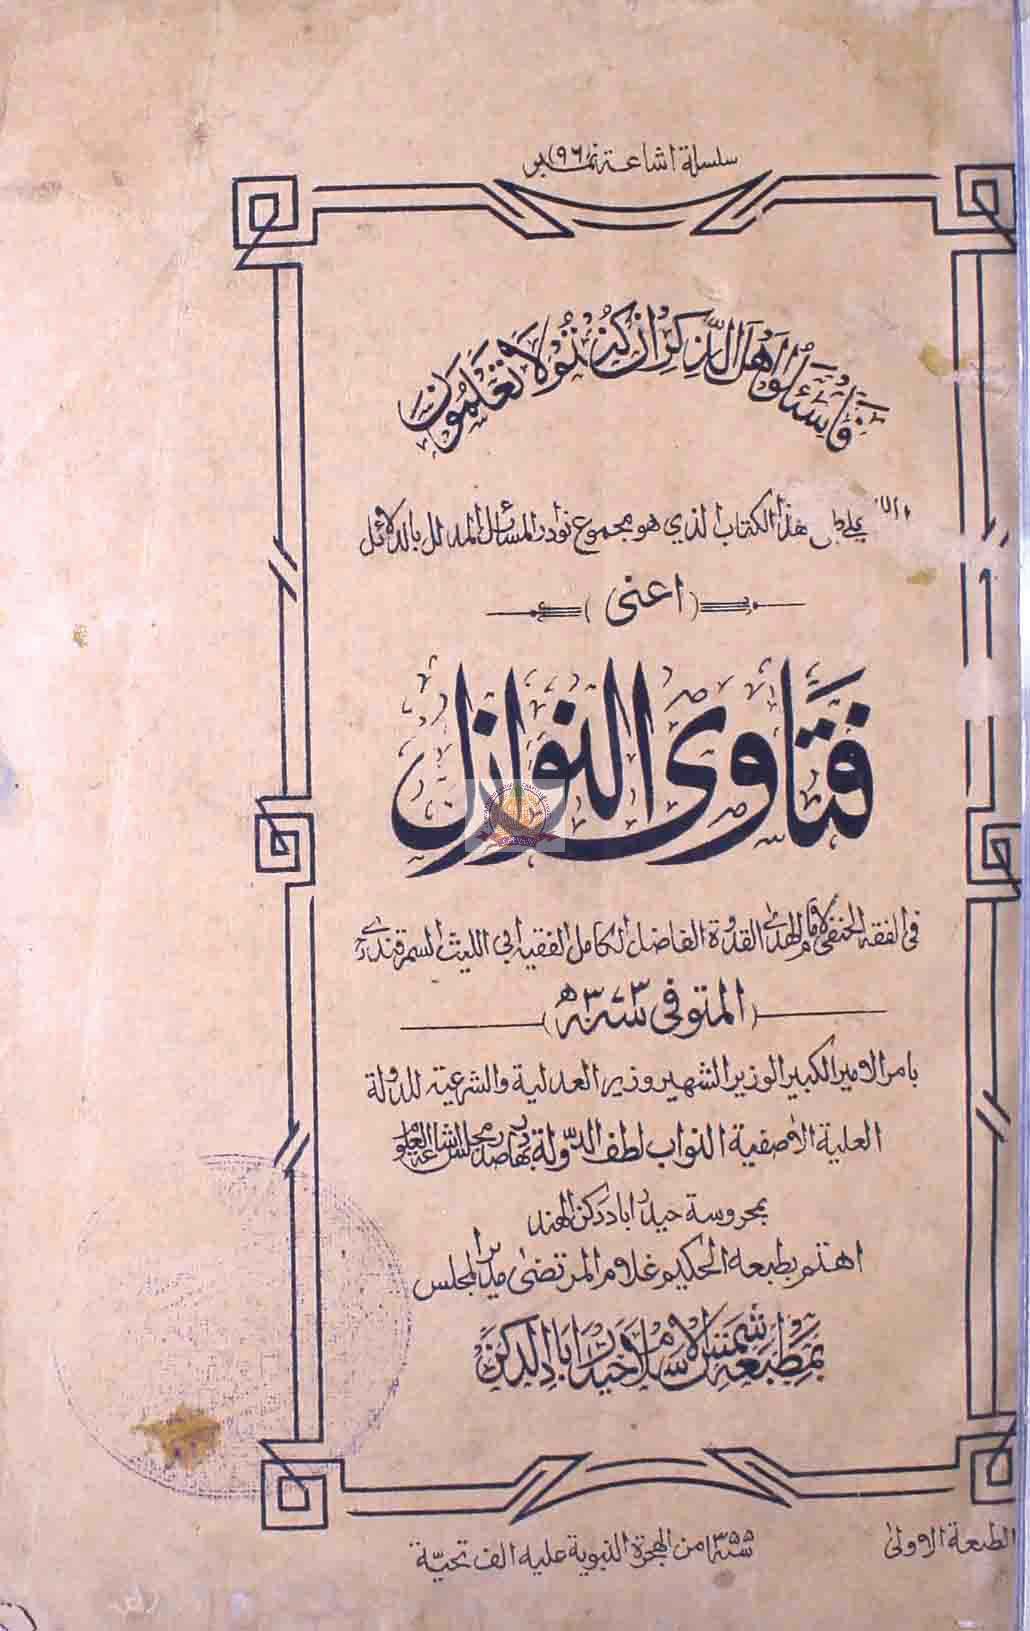 سلسلة اشاعة نمبر (٩٦)
فَاسْئَلُوْا اَهْلَ الذِّكْرِ اِنْ كُنْتُمْ لَا تَعْلَمُوْنَ
هذا الكتاب الذي هو مجموع نوادر المسائل المدلل بالدلائل
(اعنی)
فتاوی النوازل
فی الفقه الحنفی لامام الهدی القدوة الفاضل الكامل الفقیه ابی اللیث السمرقندی
(المتوفی ٣٧٣ه)
بامر الامیر الكبیر الوزیر الشهیر وزیر العدلیة والشرعیة للدولة
العلیة الآصفیة النواب لطف الدّولة بهادر صدر مجلس اشاعة العلوم
بمحروسة حیدراباد دكن الهند
اهتم بطبعه الحكیم غلام المرتضی مدیر المجلس
بمطبعة شمس الاسلام حیدراباد الدكن
الطبعة الاولیٰ
١٣٥٥ من الهجرة النبویة علیه الف تحیّة